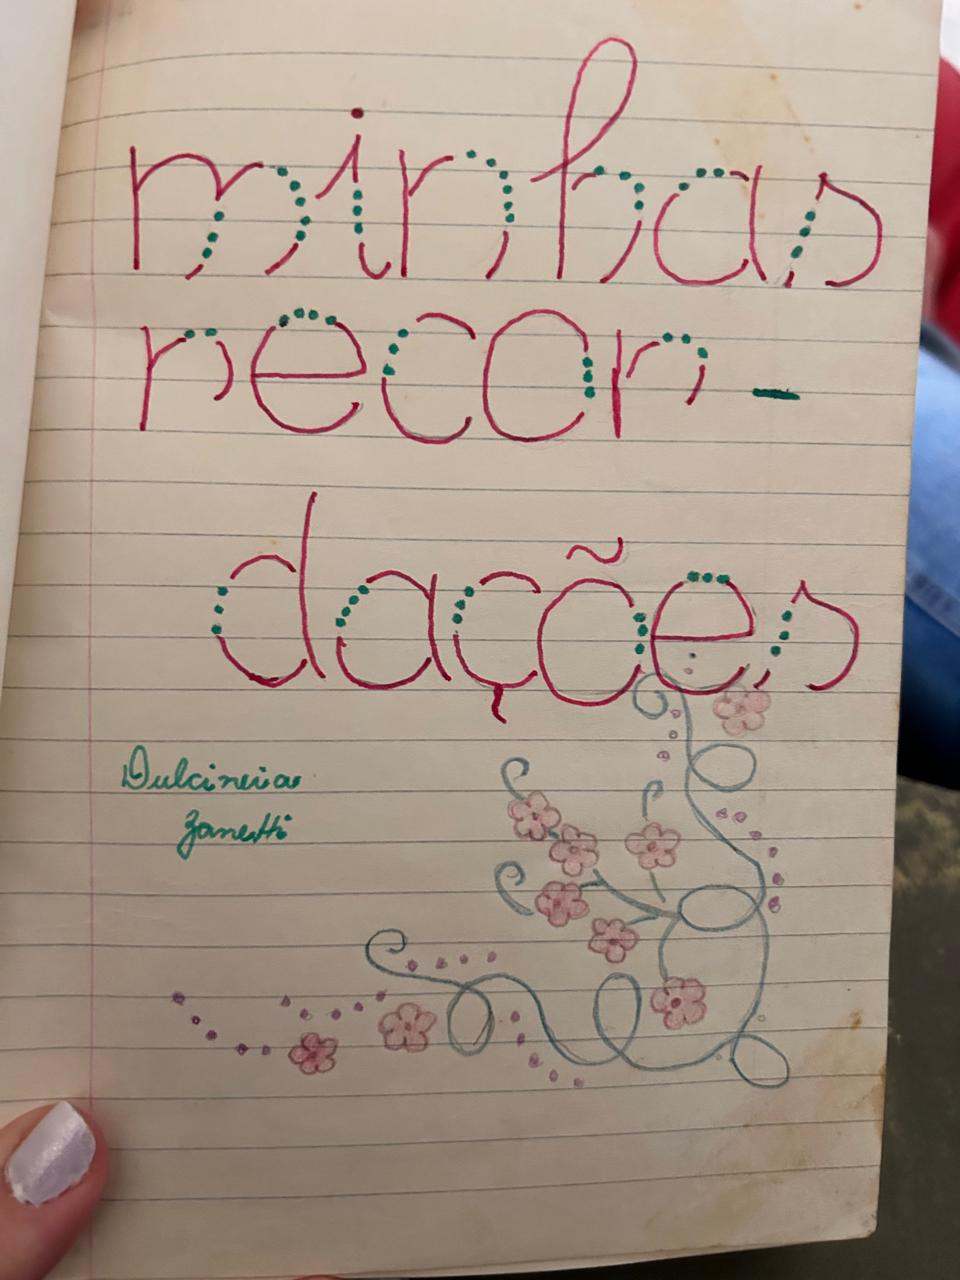 minhas
recor-
dações
Dulcineia
Zanetti